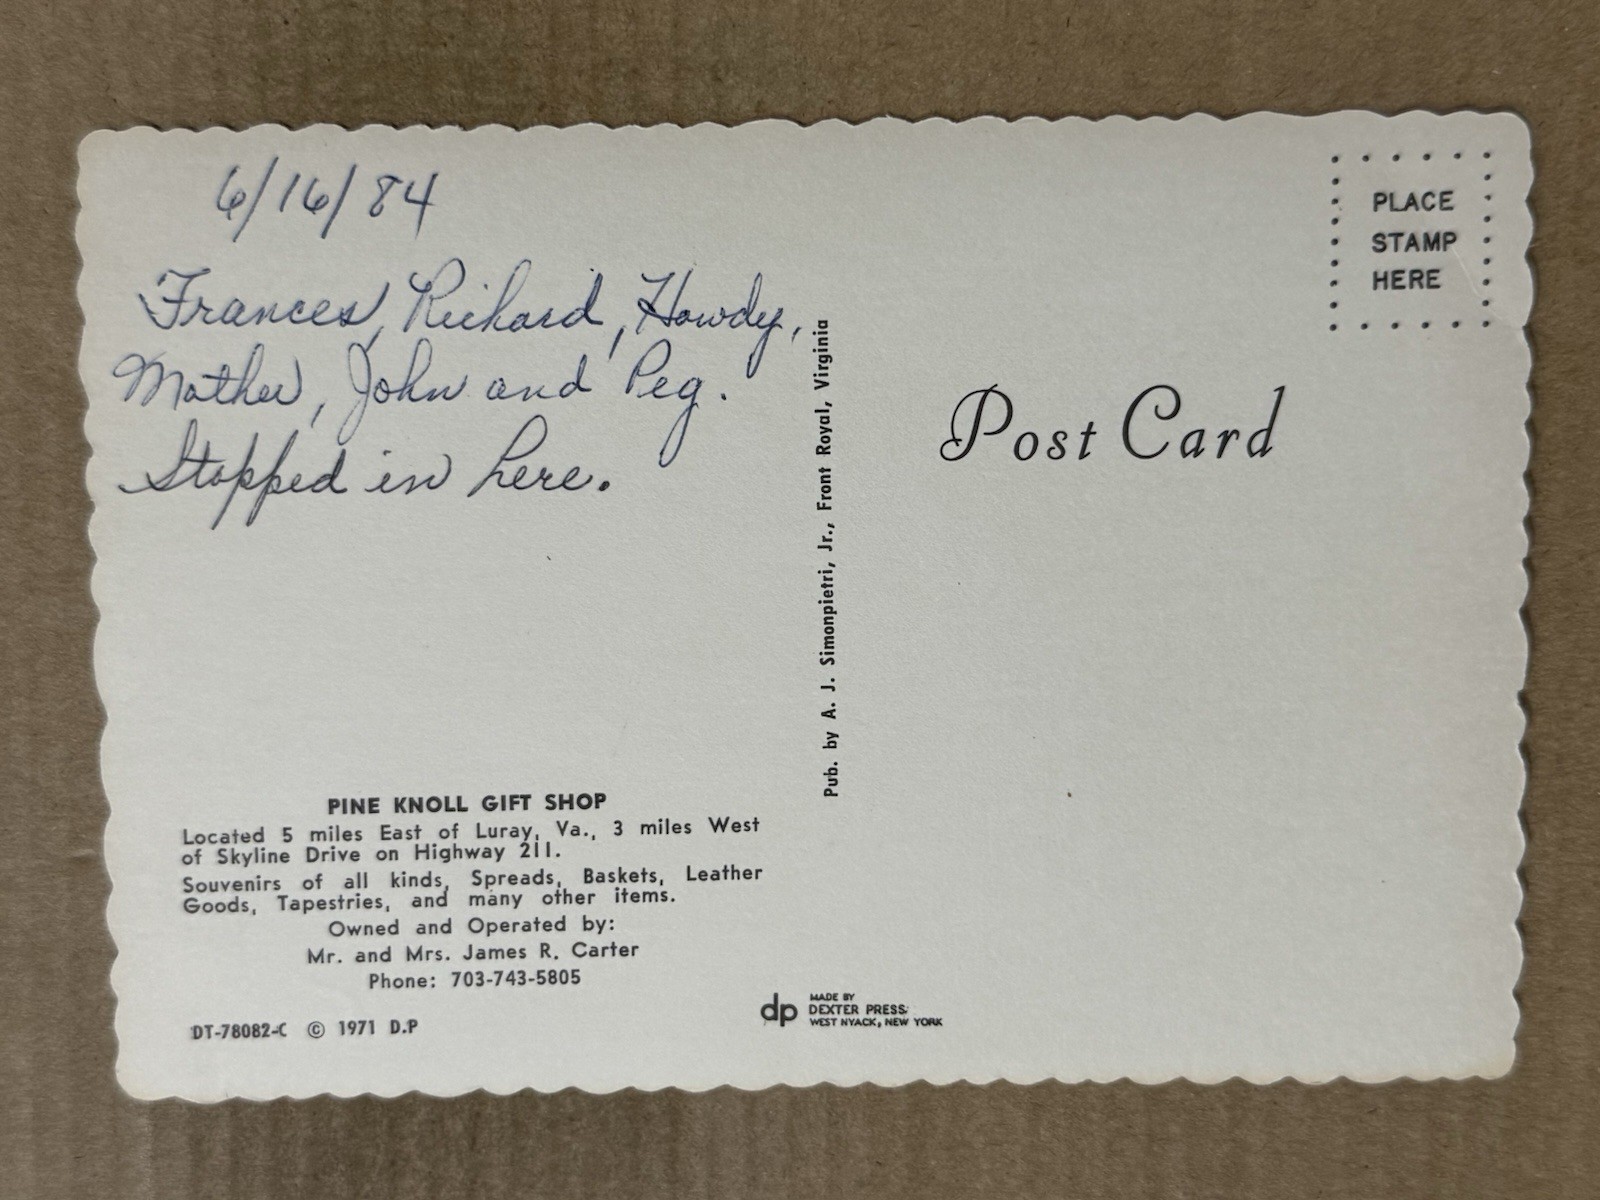 6/16/84
Frances, Richard, Howdy,
Mother, John and Peg.
Stopped in here.
PINE KNOLL GIFT SHOP
Located 5 miles East of Luray, Va., 3 miles West
of Skyline Drive on Highway 211.
Souvenirs of all kinds, Spreads, Baskets, Leather
Goods, Tapestries, and many other items.
Owned and Operated by:
Mr. and Mrs. James R. Carter
Phone: 703-743-5805
DT-78082-C © 1971 D.P
Pub. by A. J. Simonpietri, Jr., Front Royal, Virginia
dp
MADE BY
DEXTER PRESS
WEST NYACK, NEW YORK
PLACE
STAMP
HERE
Post Card